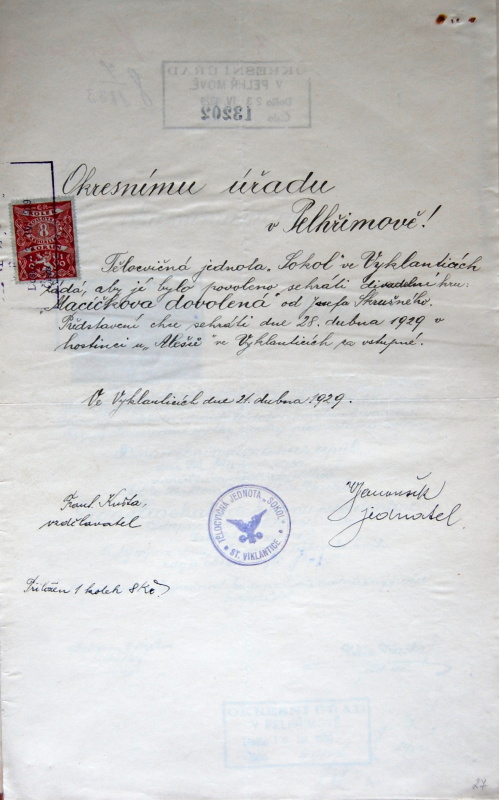 Okresnímu úřadu
v Pelhřimově!
Tělocvičná jednota „Sokol" ve Vyklanticích
žádá, aby jí bylo povoleno sehráti divadelní hru:
„Macíčkova dovolená" od Josefa Skružného.
Představení chce sehráti dne 28. dubna 1929 v
hostinci u „Alešů" ve Vyklanticích za vstupné.
Ve Vyklanticích dne 21. dubna 1929.
Frant. Kušta
vzdělavatel
TĚLOCVIČNÁ JEDNOTA „SOKOL"
ST. VIKLANTICE
jednatel.
Přiložen 1 kolek 8 Kč.
KOLEK
8
OKRESNÍ ÚŘAD
V PELHŘIMOVĚ
Došlo
Číslo
13202
27